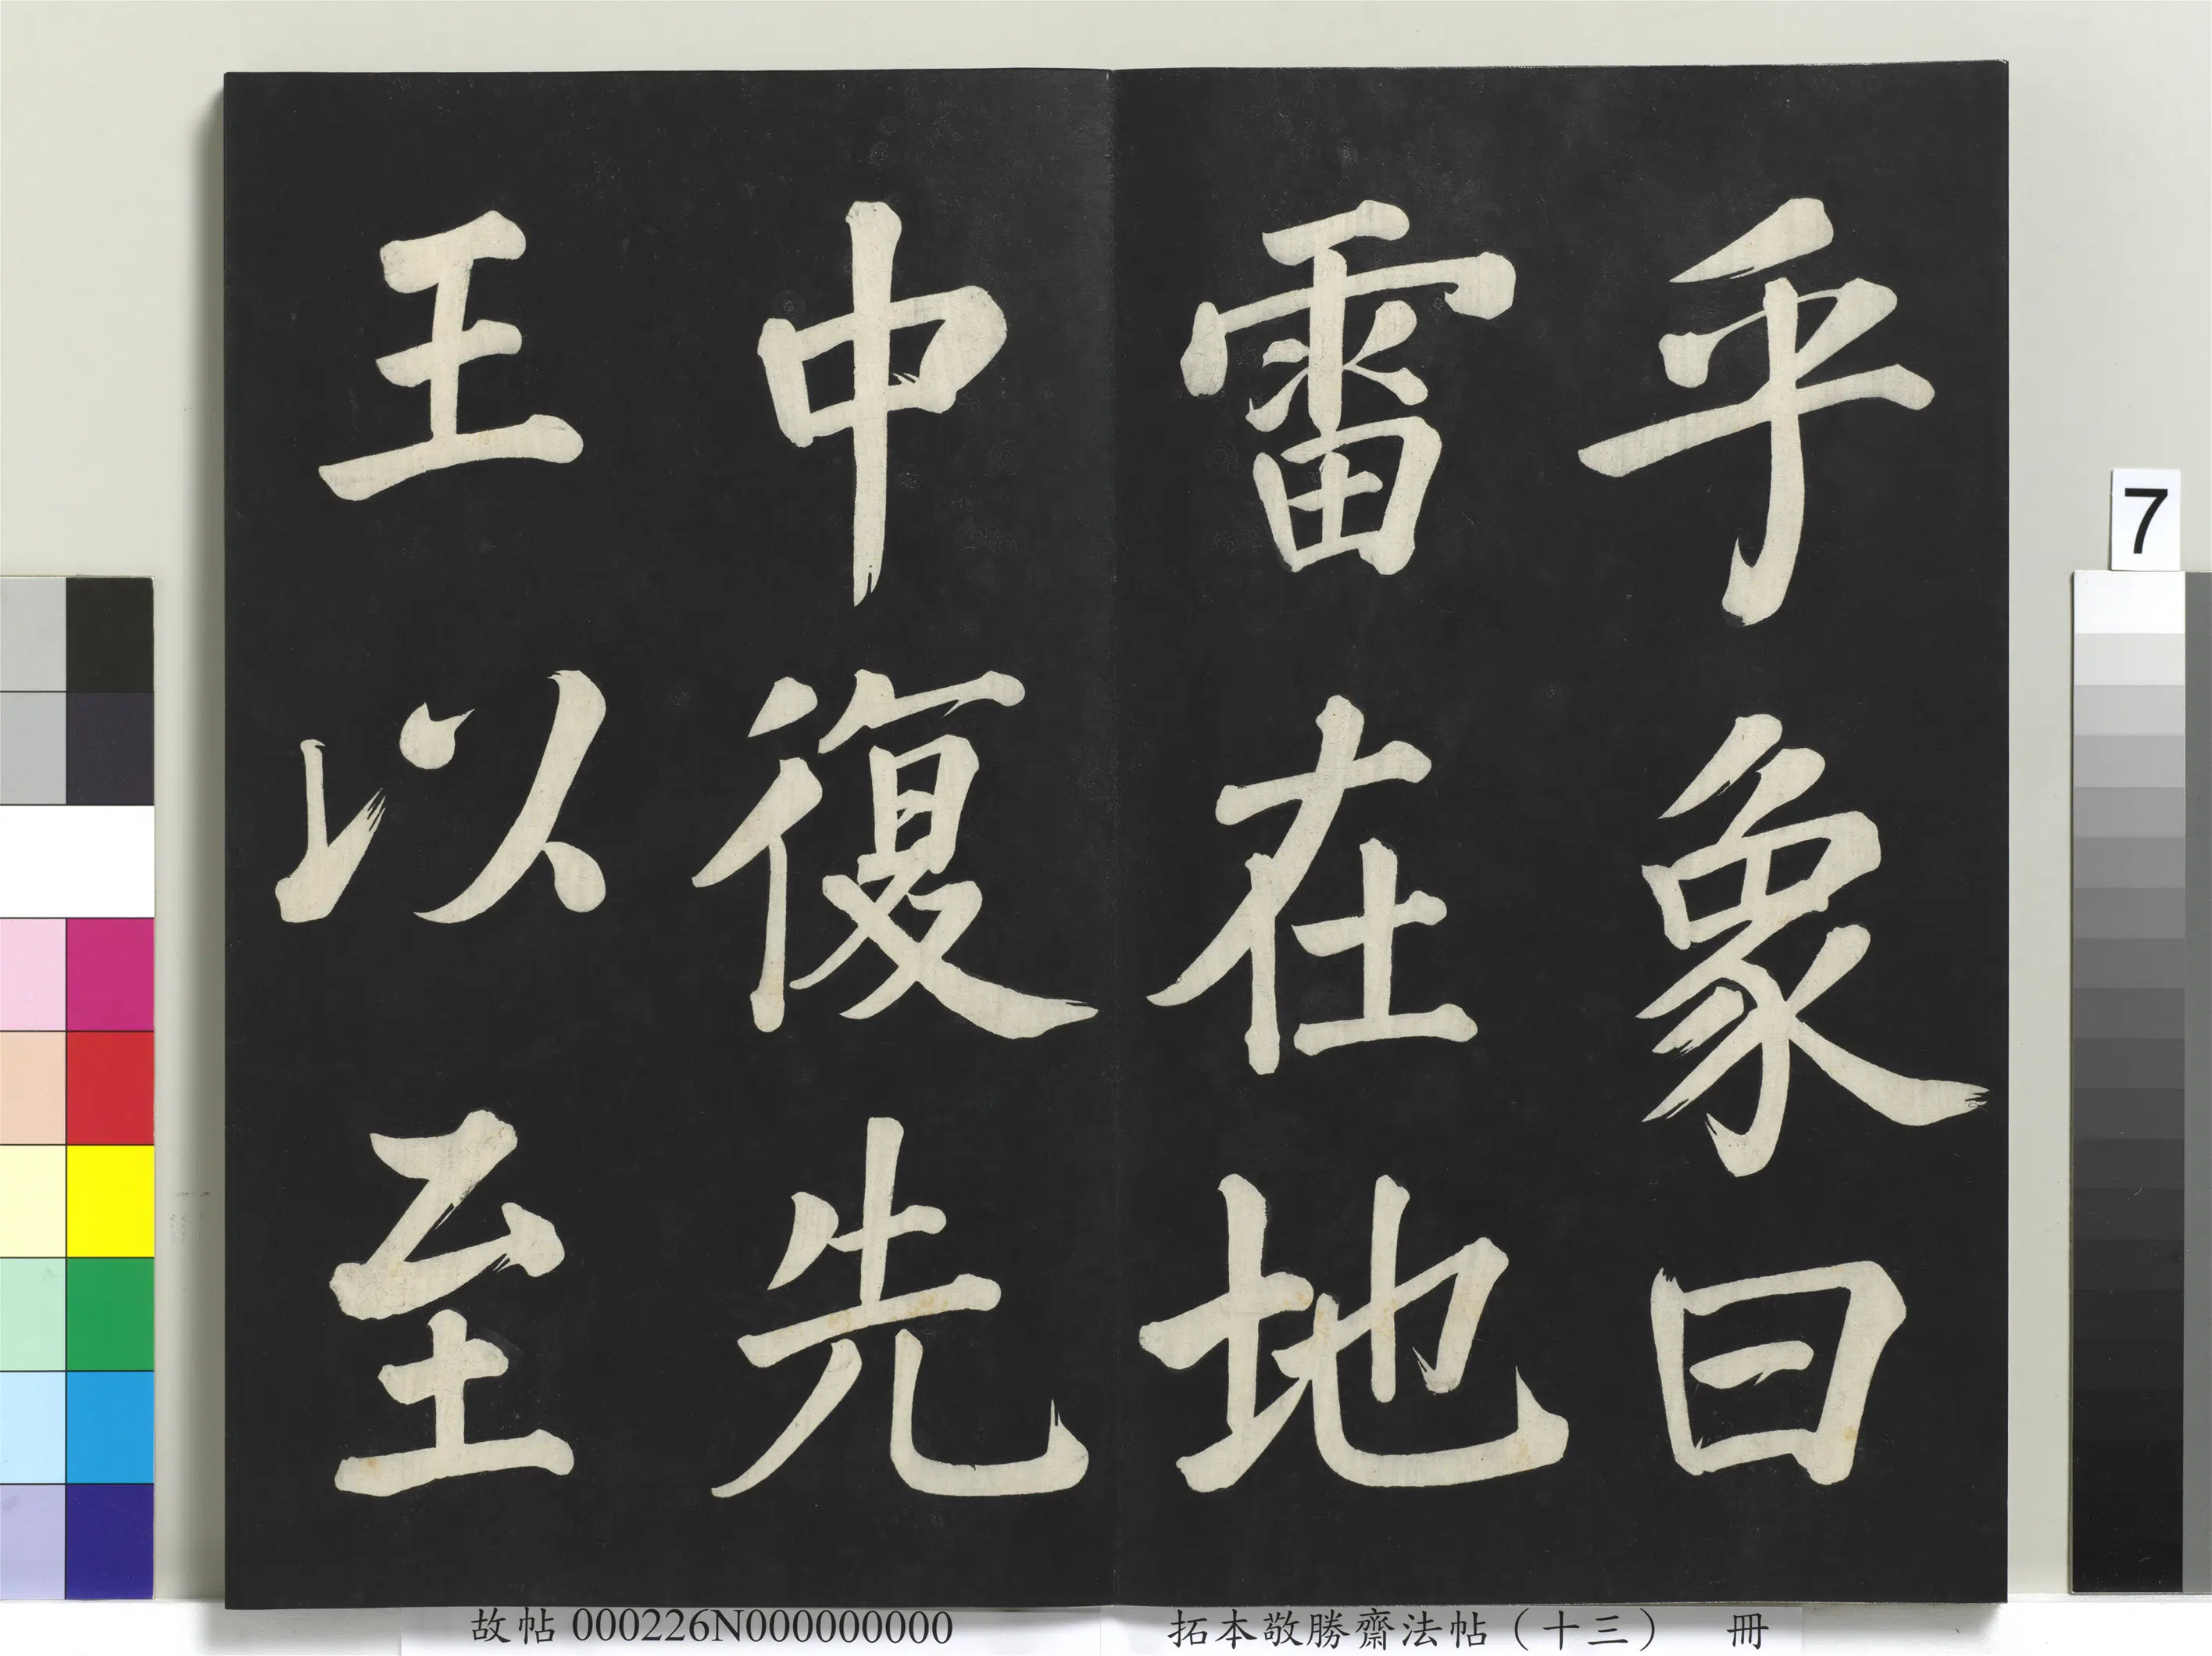 乎象曰
雷在地
中復先
王以至
7
故帖 000226N000000000
拓本敬勝齋法帖（十三） 冊